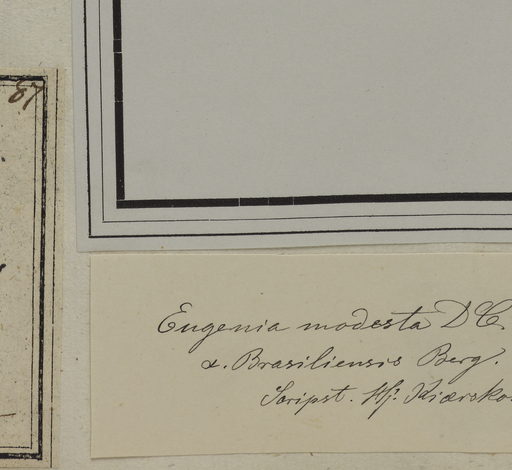 87
Eugenia modesta DC.
α. Brasiliensis Berg.
Scripst. Hj. Kiærsko